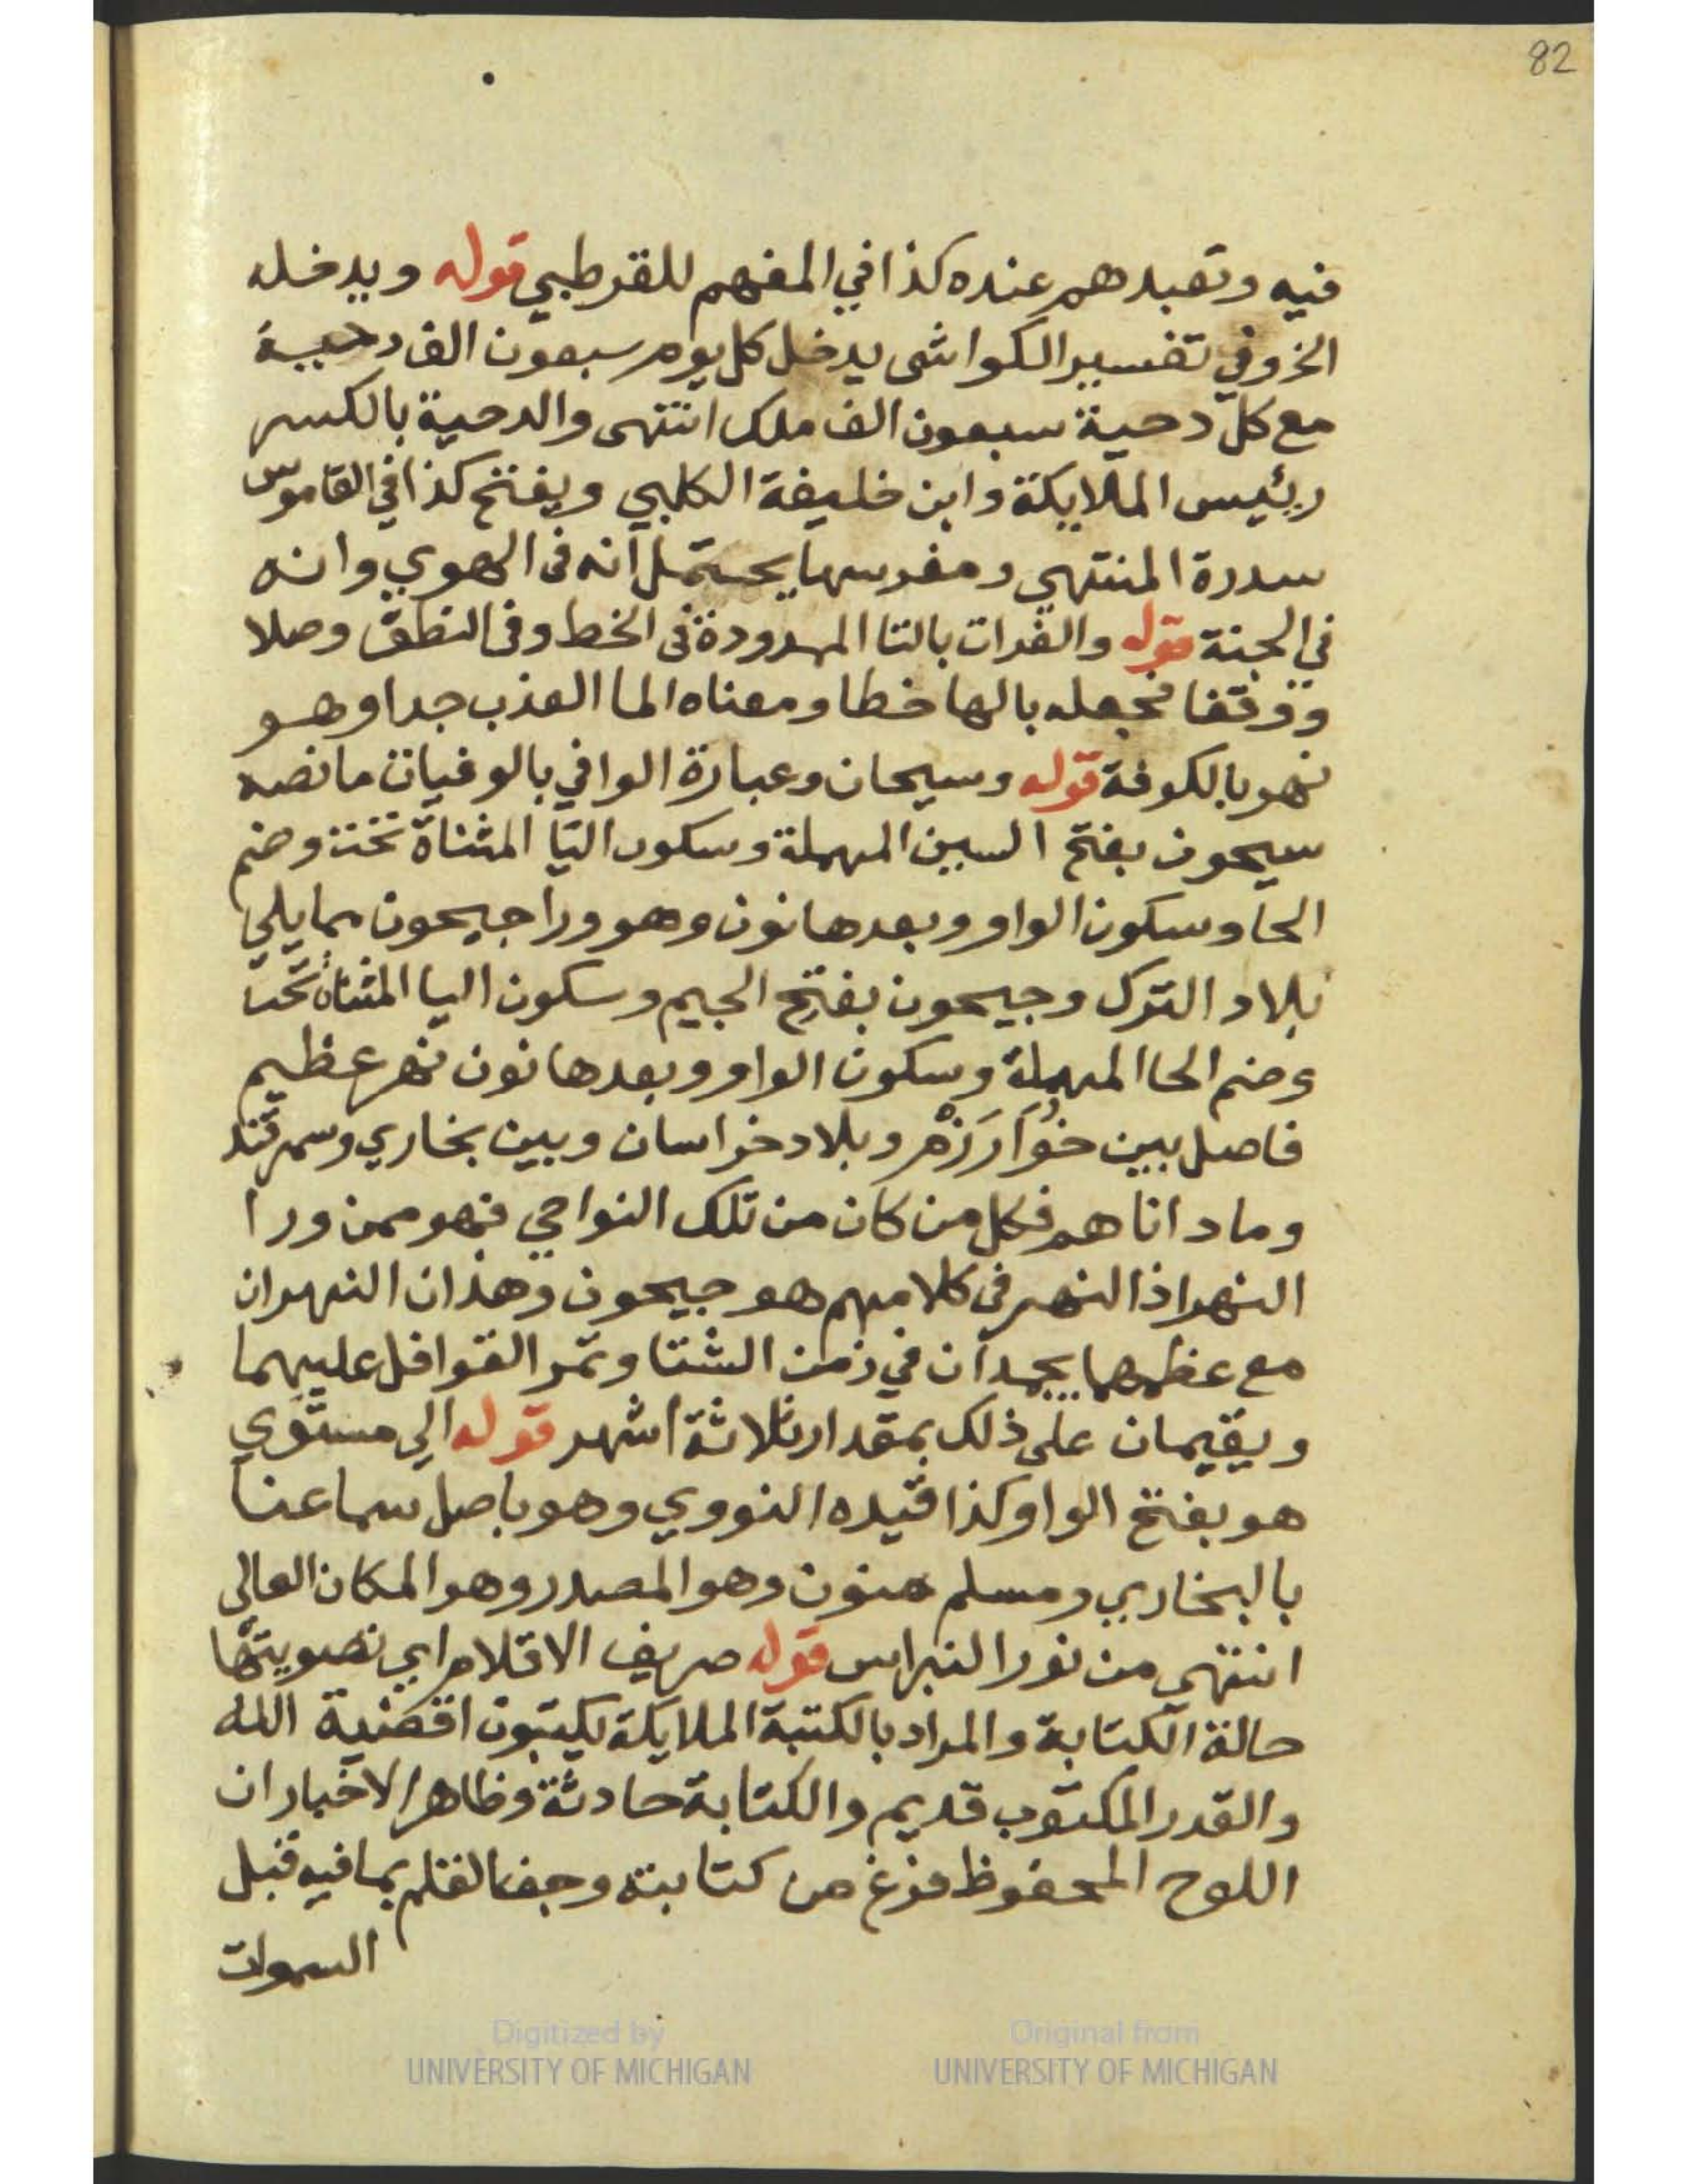 82
فيه وتعبدهم عنده كذا في المفهم للقرطبي قوله ويدخله
الخ وفي تفسير الكواشى يدخل كل يوم سبعون الف دحية
مع كل دحية سبعون الف ملك انتهى والدحية بالكسر
رئيس الملايكة وابن خليفة الكلبي ويفتح كذا في القاموس
سدرة المنتهي ومغرسها يحتمل انه فى الهوي وانه
في الجنة قوله والفرات بالتا الممدودة فى الخط وفى النطق وصلا
ووقفا فجعله بالها خطا ومعناه الما العذب جدا وهو
نهر بالكوفة قوله وسيحان وعبارة الوافي بالوفيات ما نصه
سيحون بفتح السين المهملة وسكون اليا المثناة تحت وضم
الحا وسكون الواو وبعدها نون وهو ورا جيحون مما يلي
بلاد الترك وجيحون بفتح الجيم وسكون اليا المثناة تحت
وضم الحا المهملة وسكون الواو وبعدها نون نهر عظيم
فاصل بين خُوَارَزْم وبلاد خراسان وبين بخاري وسمرقند
وما داناهم فكل من كان من تلك النواحي فهو ممن ورا
النهر اذ النهر في كلامهم هو جيحون وهذان النهران
مع عظمهما يجمدان في زمن الشتا وتمر القوافل عليهما
ويقيمان على ذلك بمقدار ثلاثة اشهر قوله الي مستوي
هو بفتح الواو كذا قيده النووي وهو باصل سماعنا
بالبخاري ومسلم منون وهو المصدر وهو المكان العالى
انتهي من نور النبراس قوله صريف الاقلام اي تصويتها
حالة الكتابة والمراد بالكتبة الملايكة يكتبون اقضية الله
والقدر المكتوب قديم والكتابة حادثة وظاهر الاخبار ان
اللوح المحفوظ فرغ من كتابته وجف القلم بما فيه قبل
السموات
Digitized by
UNIVERSITY OF MICHIGAN
Original from
UNIVERSITY OF MICHIGAN